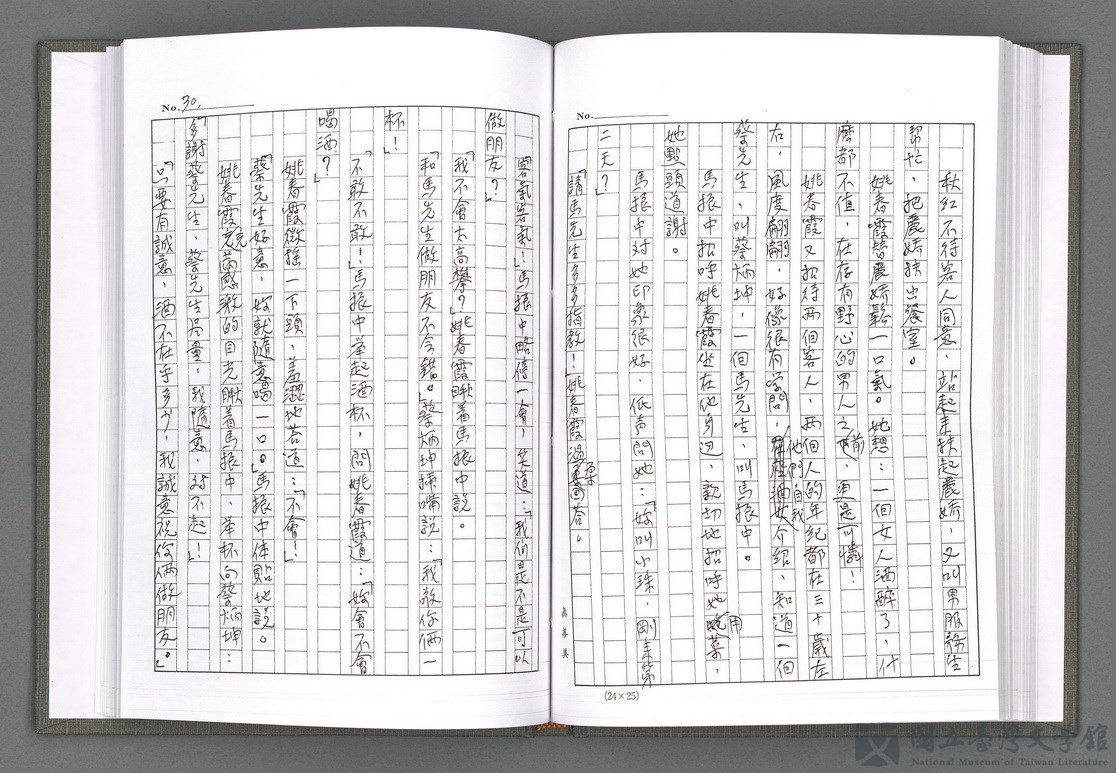 No.
秋紅不待客人同意，站起來扶起嚴嬌，又叫男服務生
幫忙，把嚴嬌扶出餐室。
姚春霞替嚴嬌鬆一口氣。她想：一個女人酒醉了，什
麼都不值，在存有野心的男人之前，更是可憐！
姚春霞又招待兩個客人，兩個人的年紀都在三十歲左
右，風度翩翩，好像很有学問，他們自我介紹，知道一個
蔡先生，叫蔡炳坤，一個馬先生，叫馬振中。
馬振中招呼姚春霞坐在他身边，親切地招呼她用菜，
她點頭道謝。
馬振中对她印象很好，低声問她：「妳叫小珠，剛來第
二天？」
「請馬先生多多指教！」姚春霞溫柔回答。
真善美
(24×25)
No. 30.
「客氣客氣！」馬振中略停一會，笑道：「我们是不是可以
做朋友？」
「我不會太高攀？」姚春霞瞅着馬振中說。
「和馬先生做朋友不会錯。」蔡炳坤插嘴說：「我敬你倆一
杯！」
「不敢不敢！」馬振中举起酒杯，問姚春霞道：「妳會不會
喝酒？」
姚春霞微搖一下頭，羞澀地答道：「不會！」
「蔡先生好意，妳就隨意喝一口。」馬振中体貼地說。
姚春霞充滿感激的目光瞅着馬振中，举杯向蔡炳坤：
「多謝蔡先生，蔡先生尽量，我隨意，对不起！」
「只要有誠意，酒不在乎多少，我誠意祝你倆做朋友。」
國立臺灣文學館
National Museum of Taiwan Literature